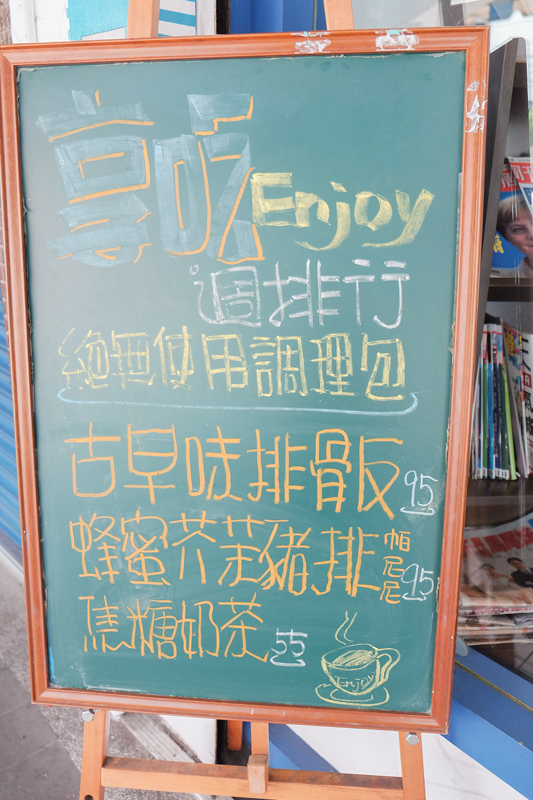 享吃Enjoy
週排行
絕無使用調理包
古早味排骨飯 95
蜂蜜芥茉豬排帕尼尼 95
焦糖奶茶 55
Enjoy